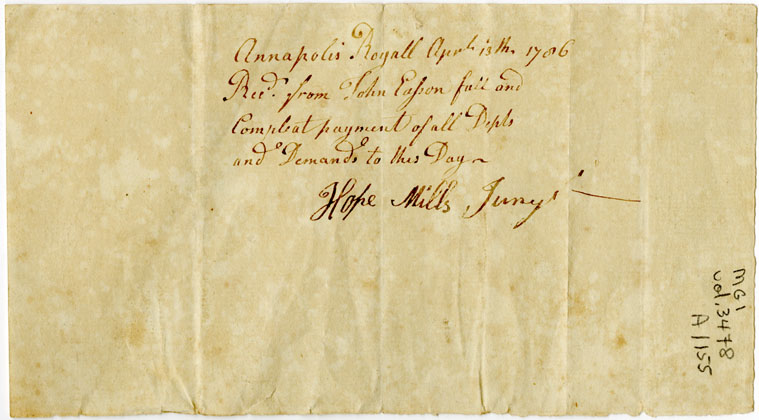 Annapolis Royall Aprl. 13th. 1786
Recd. from John Easson full and
Compleat payment of all Depts
and Demands to this Day
Hope Mills Juny
MG 1
vol. 3478
A 1155